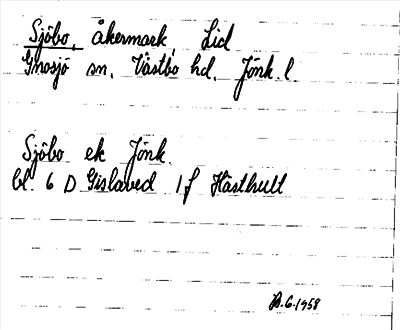 Sjöbo, åkermark, Lid
Gnosjö sn. Västbo hd. Jönk. l.
Sjöbo ek Jönk.
bl. 6 D Gislaved 1 f Hästhult
6.1958